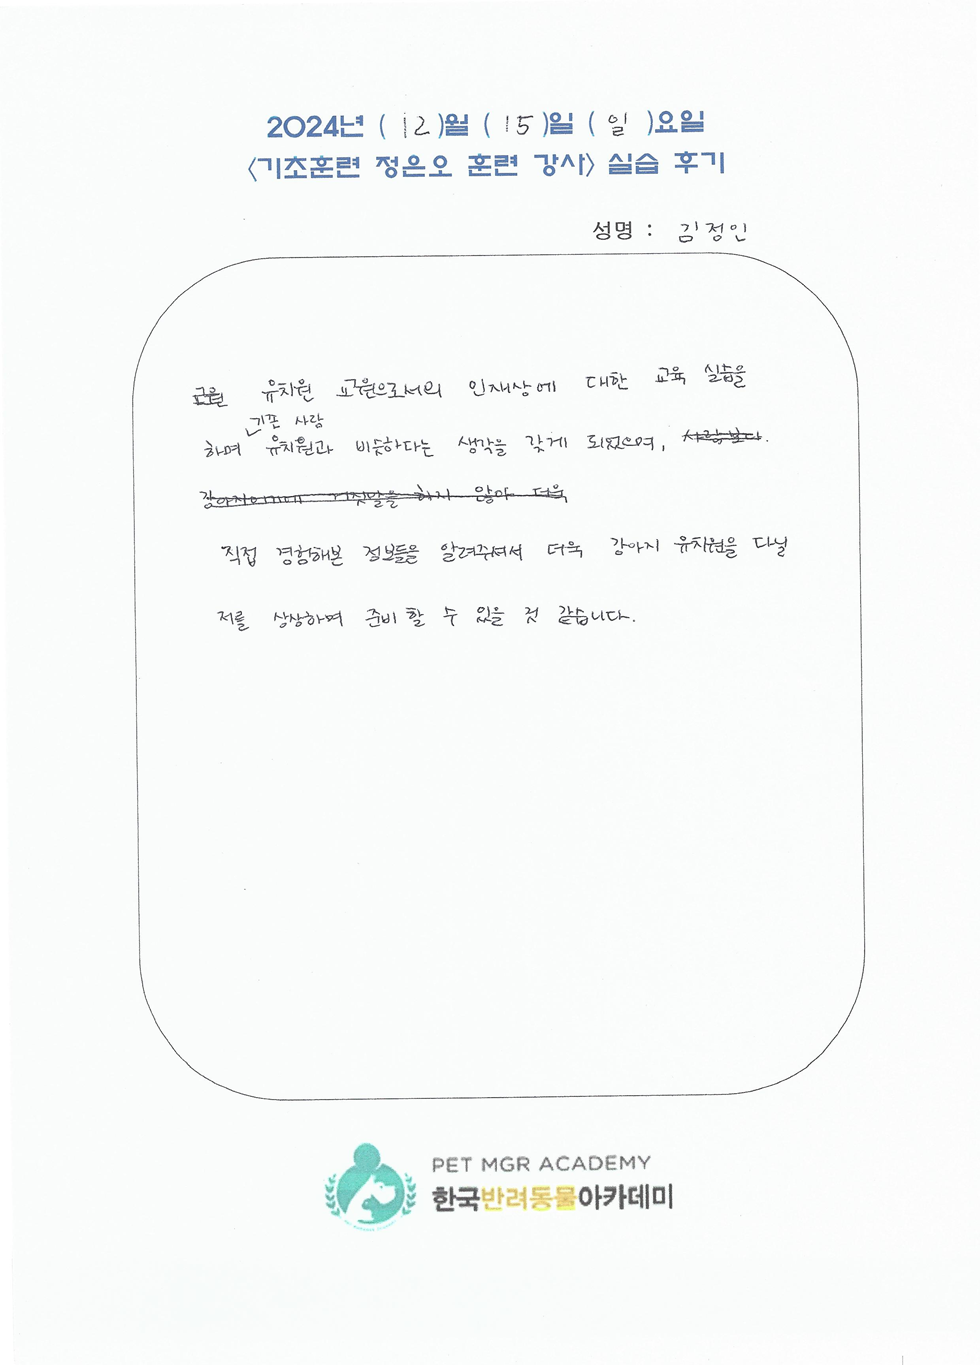 2024년 ( 12 )월 ( 15 )일 ( 일 )요일
<기초훈련 정은오 훈련 강사> 실습 후기
성명 : 김정인
유치원 교원으로서의 인재상에 대한 교육 실습을
기존 사람
하며 유치원과 비슷하다는 생각을 갖게 되었으며, 사람보다.
강아지에게 거짓말을 하지 않아 더욱
직접 경험해본 정보들을 알려주셔서 더욱 강아지 유치원을 다닐
저를 상상하며 준비 할 수 있을 것 같습니다.
PET MGR ACADEMY
한국반려동물아카데미